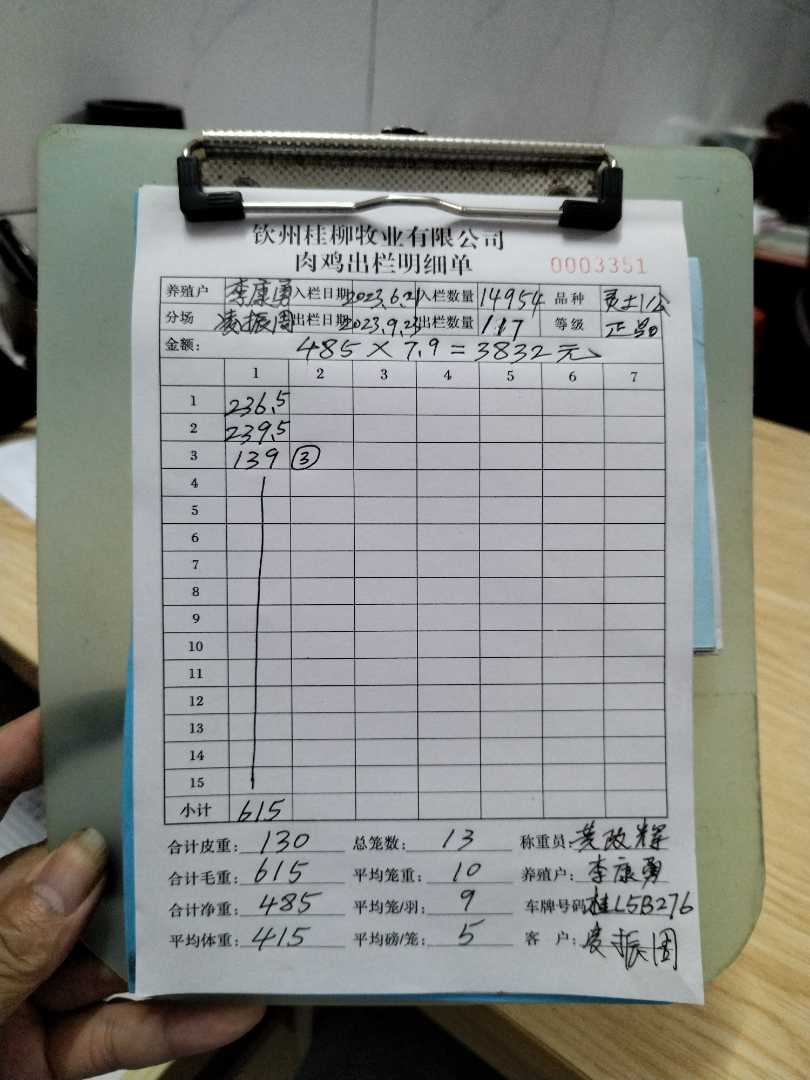 钦州桂柳牧业有限公司
肉鸡出栏明细单 0003351
养殖户 李康勇 入栏日期 2023.6.21 入栏数量 14954 品种 土1公
分场 凌振周 出栏日期 2023.9.23 出栏数量 117 等级 正品
金额: 485×7.9=3832元
1 2 3 4 5 6 7
1 236.5
2 239.5
3 139 ③
4
5
6
7
8
9
10
11
12
13
14
15
小计 615
合计皮重: 130 总笼数: 13 称重员: 黄政辉
合计毛重: 615 平均笼重: 10 养殖户: 李康勇
合计净重: 485 平均笼/羽: 9 车牌号码 桂L5B276
平均体重: 415 平均磅/笼: 5 客户: 凌振周